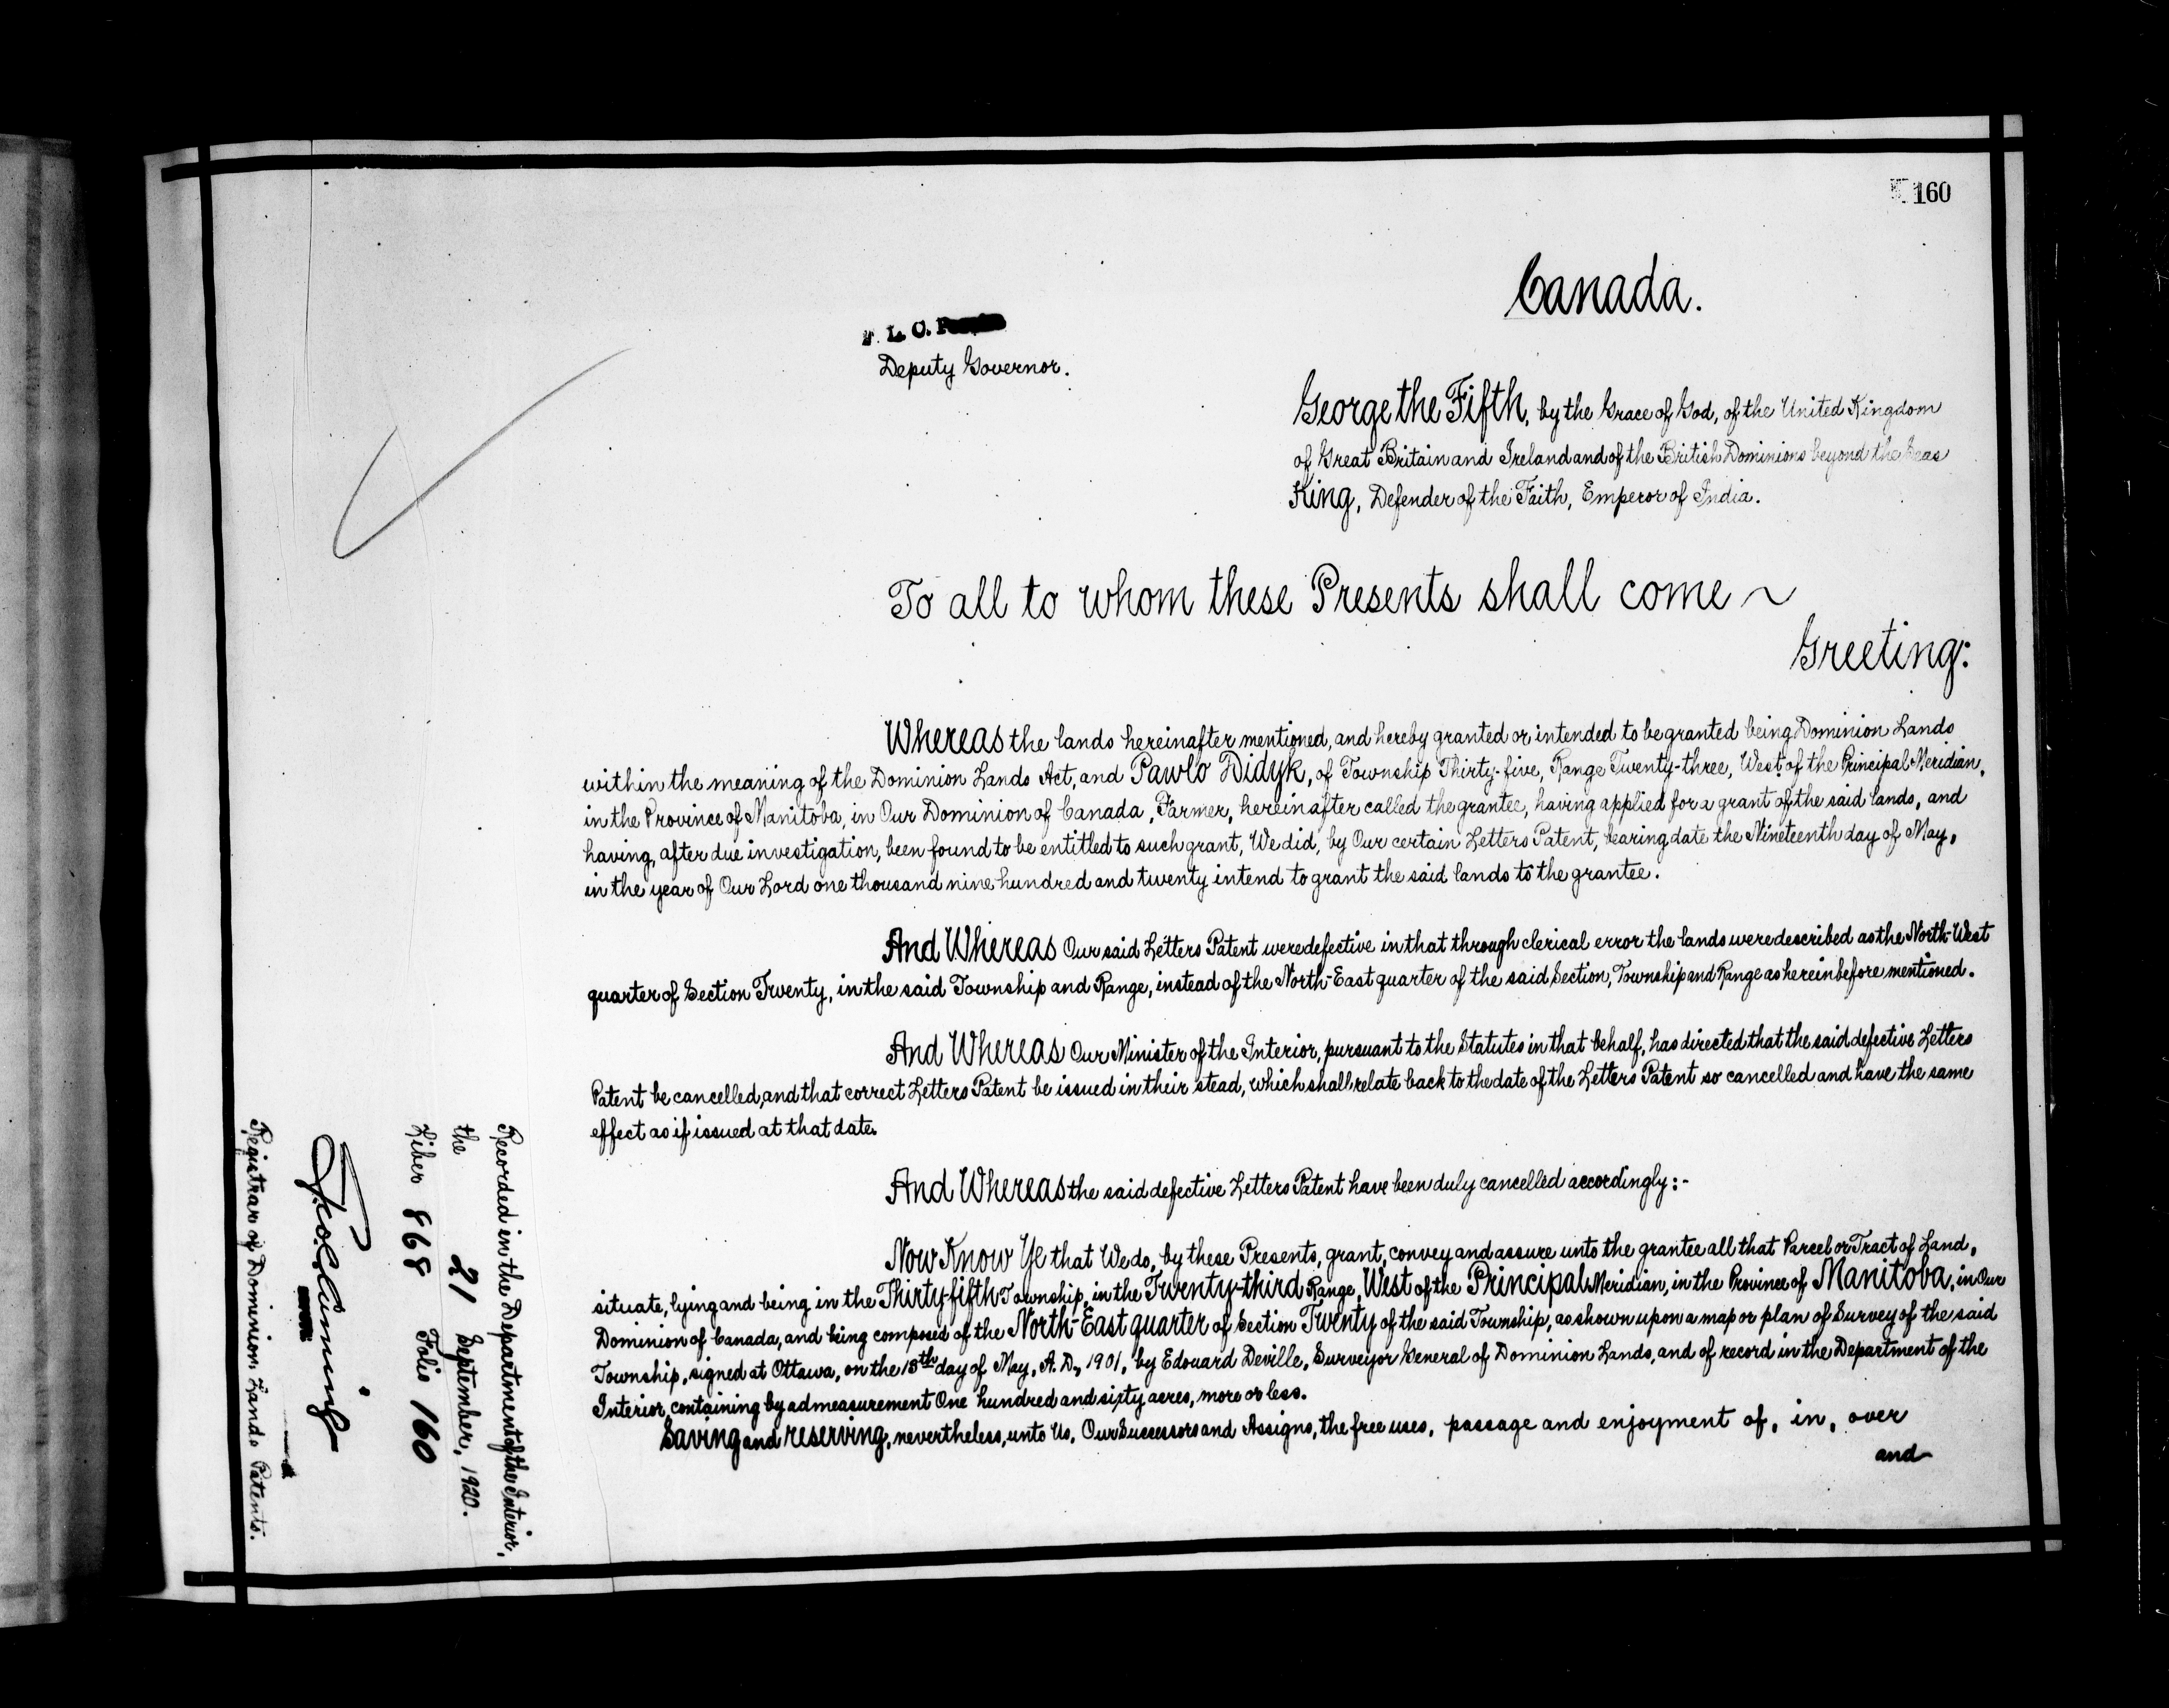 160
Canada.
L. O.
Deputy Governor.
George the Fifth, by the Grace of God, of the United Kingdom
of Great Britain and Ireland and of the British Dominions beyond the Seas
King, Defender of the Faith, Emperor of India.
To all to whom these Presents shall come ~
Greeting:
Whereas the lands hereinafter mentioned, and hereby granted or intended to be granted being Dominion Lands
within the meaning of the Dominion Lands Act, and Pawlo Didyk, of Township Thirty-five, Range Twenty-three, West of the Principal Meridian,
in the Province of Manitoba, in Our Dominion of Canada, Farmer, hereinafter called the grantee, having applied for a grant of the said lands, and
having, after due investigation, been found to be entitled to such grant, We did, by Our certain Letters Patent, bearing date the Nineteenth day of May,
in the year of Our Lord one thousand nine hundred and twenty intend to grant the said lands to the grantee.
And Whereas Our said Letters Patent were defective in that through clerical error the lands were described as the North-West
quarter of Section Twenty, in the said Township and Range, instead of the North-East quarter of the said Section, Township and Range as hereinbefore mentioned.
And Whereas Our Minister of the Interior, pursuant to the Statutes in that behalf, has directed that the said defective Letters
Patent be cancelled, and that correct Letters Patent be issued in their stead, which shall relate back to the date of the Letters Patent so cancelled and have the same
effect as if issued at that date.
And Whereas the said defective Letters Patent have been duly cancelled accordingly:-
Now Know Ye that We do, by these Presents, grant, convey and assure unto the grantee all that Parcel or Tract of Land,
situate, lying and being in the Thirty-fifth Township, in the Twenty-third Range, West of the Principal Meridian, in the Province of Manitoba, in Our
Dominion of Canada, and being composed of the North-East quarter of Section Twenty of the said Township, as shown upon a map or plan of Survey of the said
Township, signed at Ottawa, on the 13th day of May, A.D., 1901, by Edouard Deville, Surveyor General of Dominion Lands, and of record in the Department of the
Interior, containing by admeasurement One hundred and sixty acres, more or less.
Saving and reserving, nevertheless, unto Us, Our Successors and Assigns, the free uses, passage and enjoyment of, in, over
and
Recorded in the Department of the Interior,
the 21 September, 1920.
Liber 868 Folio 160
Registrar of Dominion Lands Patents.